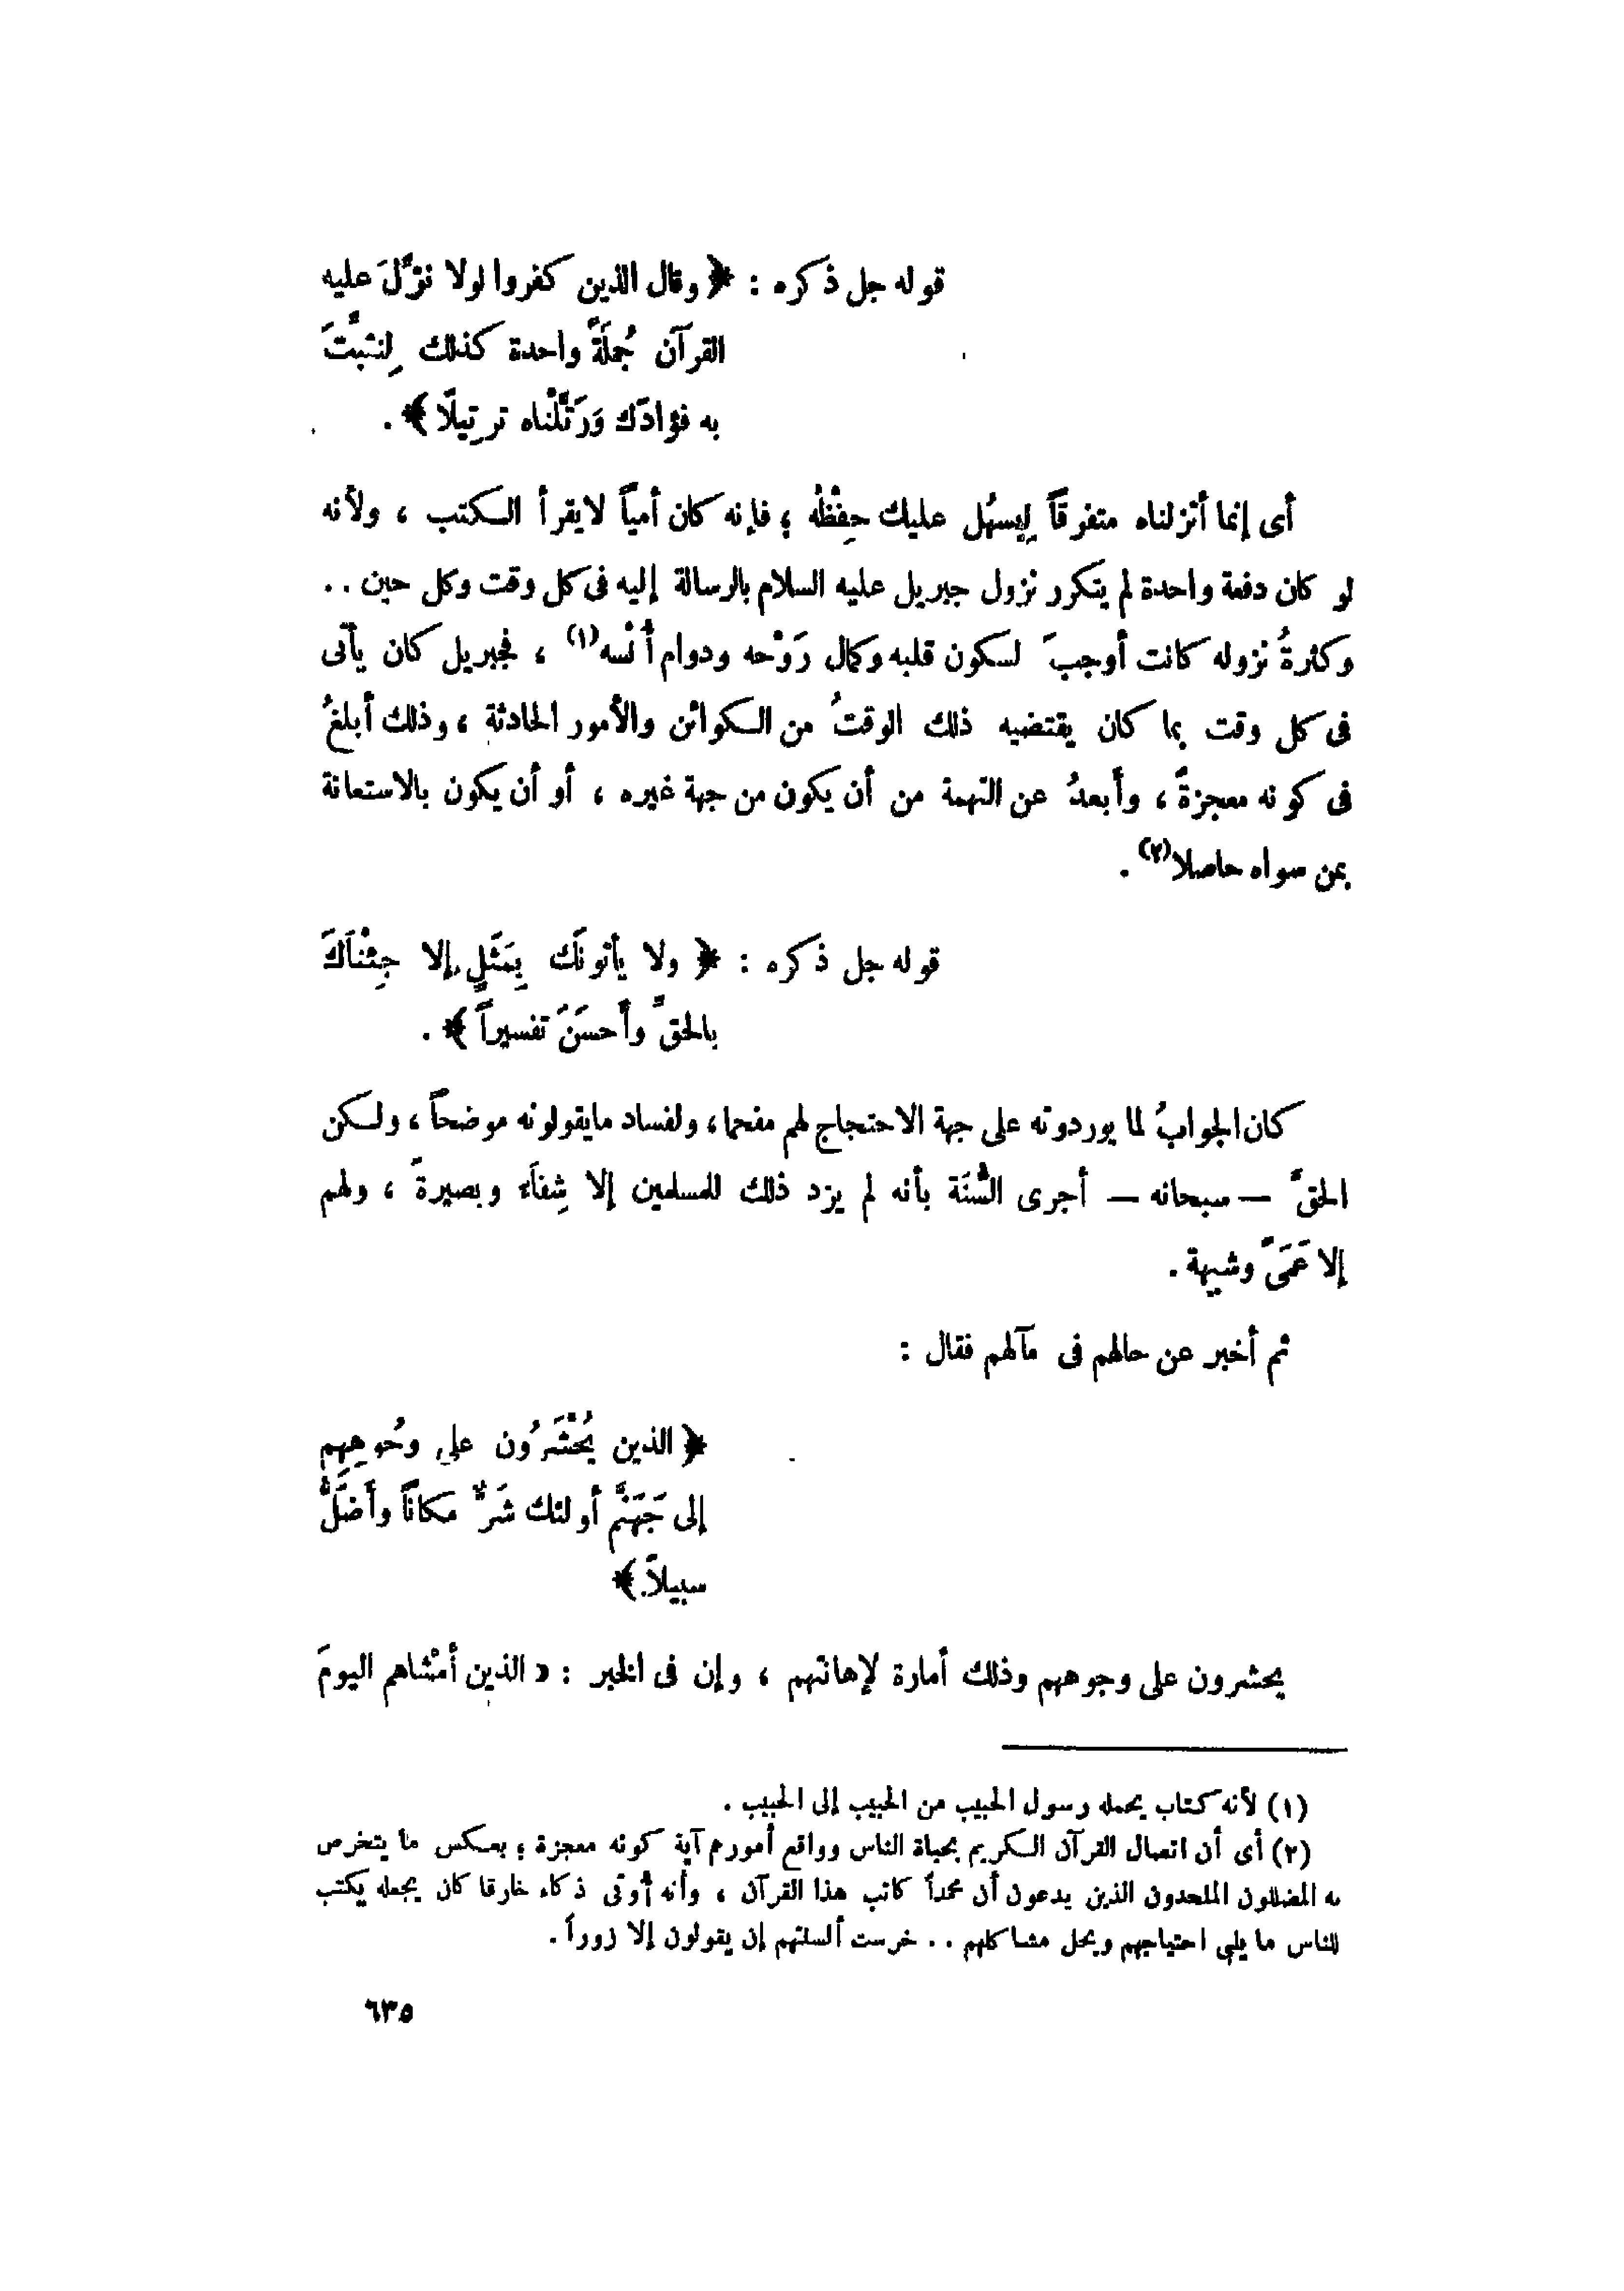 قوله جل ذكره : ﴿ وقال الذين كفروا لولا نزِّلَ عليه
القرآن جُملَةً واحدة كذلك لِنثبِّتَ
به فؤادَك وَرَتَّلْناه ترتيلًا ﴾ .
أى إنما أنزلناه متفرقاً لِيسهُل عليك حِفْظُه ؛ فإنه كان أمياً لايقرأ الكتب ، ولأنه
لو كان دفعة واحدة لم يتكرر نزول جبريل عليه السلام بالرسالة إليه فى كل وقت وكل حين . .
وكثرةُ نزوله كانت أوجبَ لسكون قلبه وكمال رَوْحه ودوام أُنْسه(١) ، فجبريل كان يأتى
فى كل وقت بما كان يقتضيه ذلك الوقتُ من الكوائن والأمور الحادثة ، وذلك أبلغُ
فى كونه معجزةً ، وأبعدُ عن التهمة من أن يكون من جهة غيره ، أو أن يكون بالاستعانة
بمن سواه حاصلا(٢) .
قوله جل ذكره : ﴿ ولا يأتونَك بِمَثَلٍ إلا جِئْنَاكَ
بالحقِّ وأَحسَنَ تفسيراً ﴾ .
كان الجوابُ لما يوردونه على جهة الاحتجاج لهم مفحما ، ولفساد مايقولونه موضحاً ، ولكن
الحقَّ — سبحانه — أجرى السُّنَة بأنه لم يزد ذلك للمسلمين إلا شِفاَء وبصيرةً ، ولهم
إلا عَمَىً وشبهة .
ثم أخبر عن حالهم فى مآلهم فقال :
﴿ الذين يُحْشَرُون على وُجوهِهِم
إلى جَهَنَّم أولئك شَرٌّ مكاناً وأَضَلُّ
سبيلاً ﴾
يحشرون على وجوههم وذلك أمارة لإهانتهم ، وإن فى الخبر : « الذين أمْشاهم اليومَ
(١) لأنه كتاب يحمله رسول الحبيب من الحبيب إلى الحبيب .
(٢) أى أن اتصال القرآن الكريم بحياة الناس وواقع أمورهم آية كونه معجزة ؛ بعكس ما يتخرص
به المضللون الملحدون الذين يدعون أن محمداً كاتب هذا القرآن ، وأنه أوتى ذكاء خارقا كان يجعله يكتب
للناس ما يلبى احتياجهم ويحل مشاكلهم . . خرست ألسنتهم إن يقولون إلا زوراً .
٦٣٥